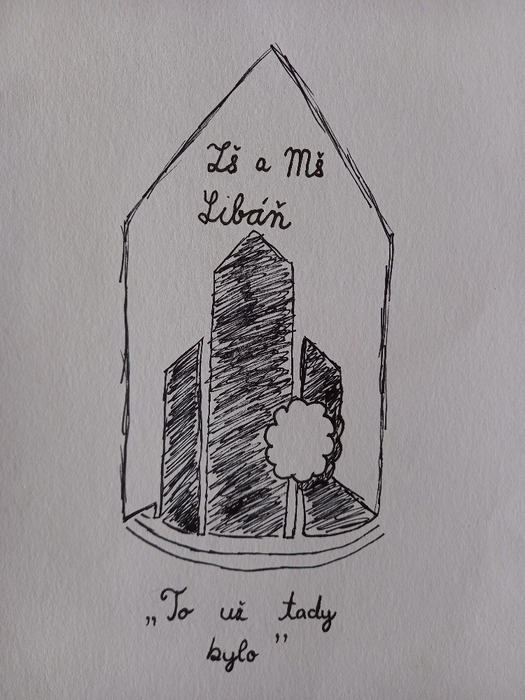 ZŠ a MŠ
Libáň
„To už tady
bylo”